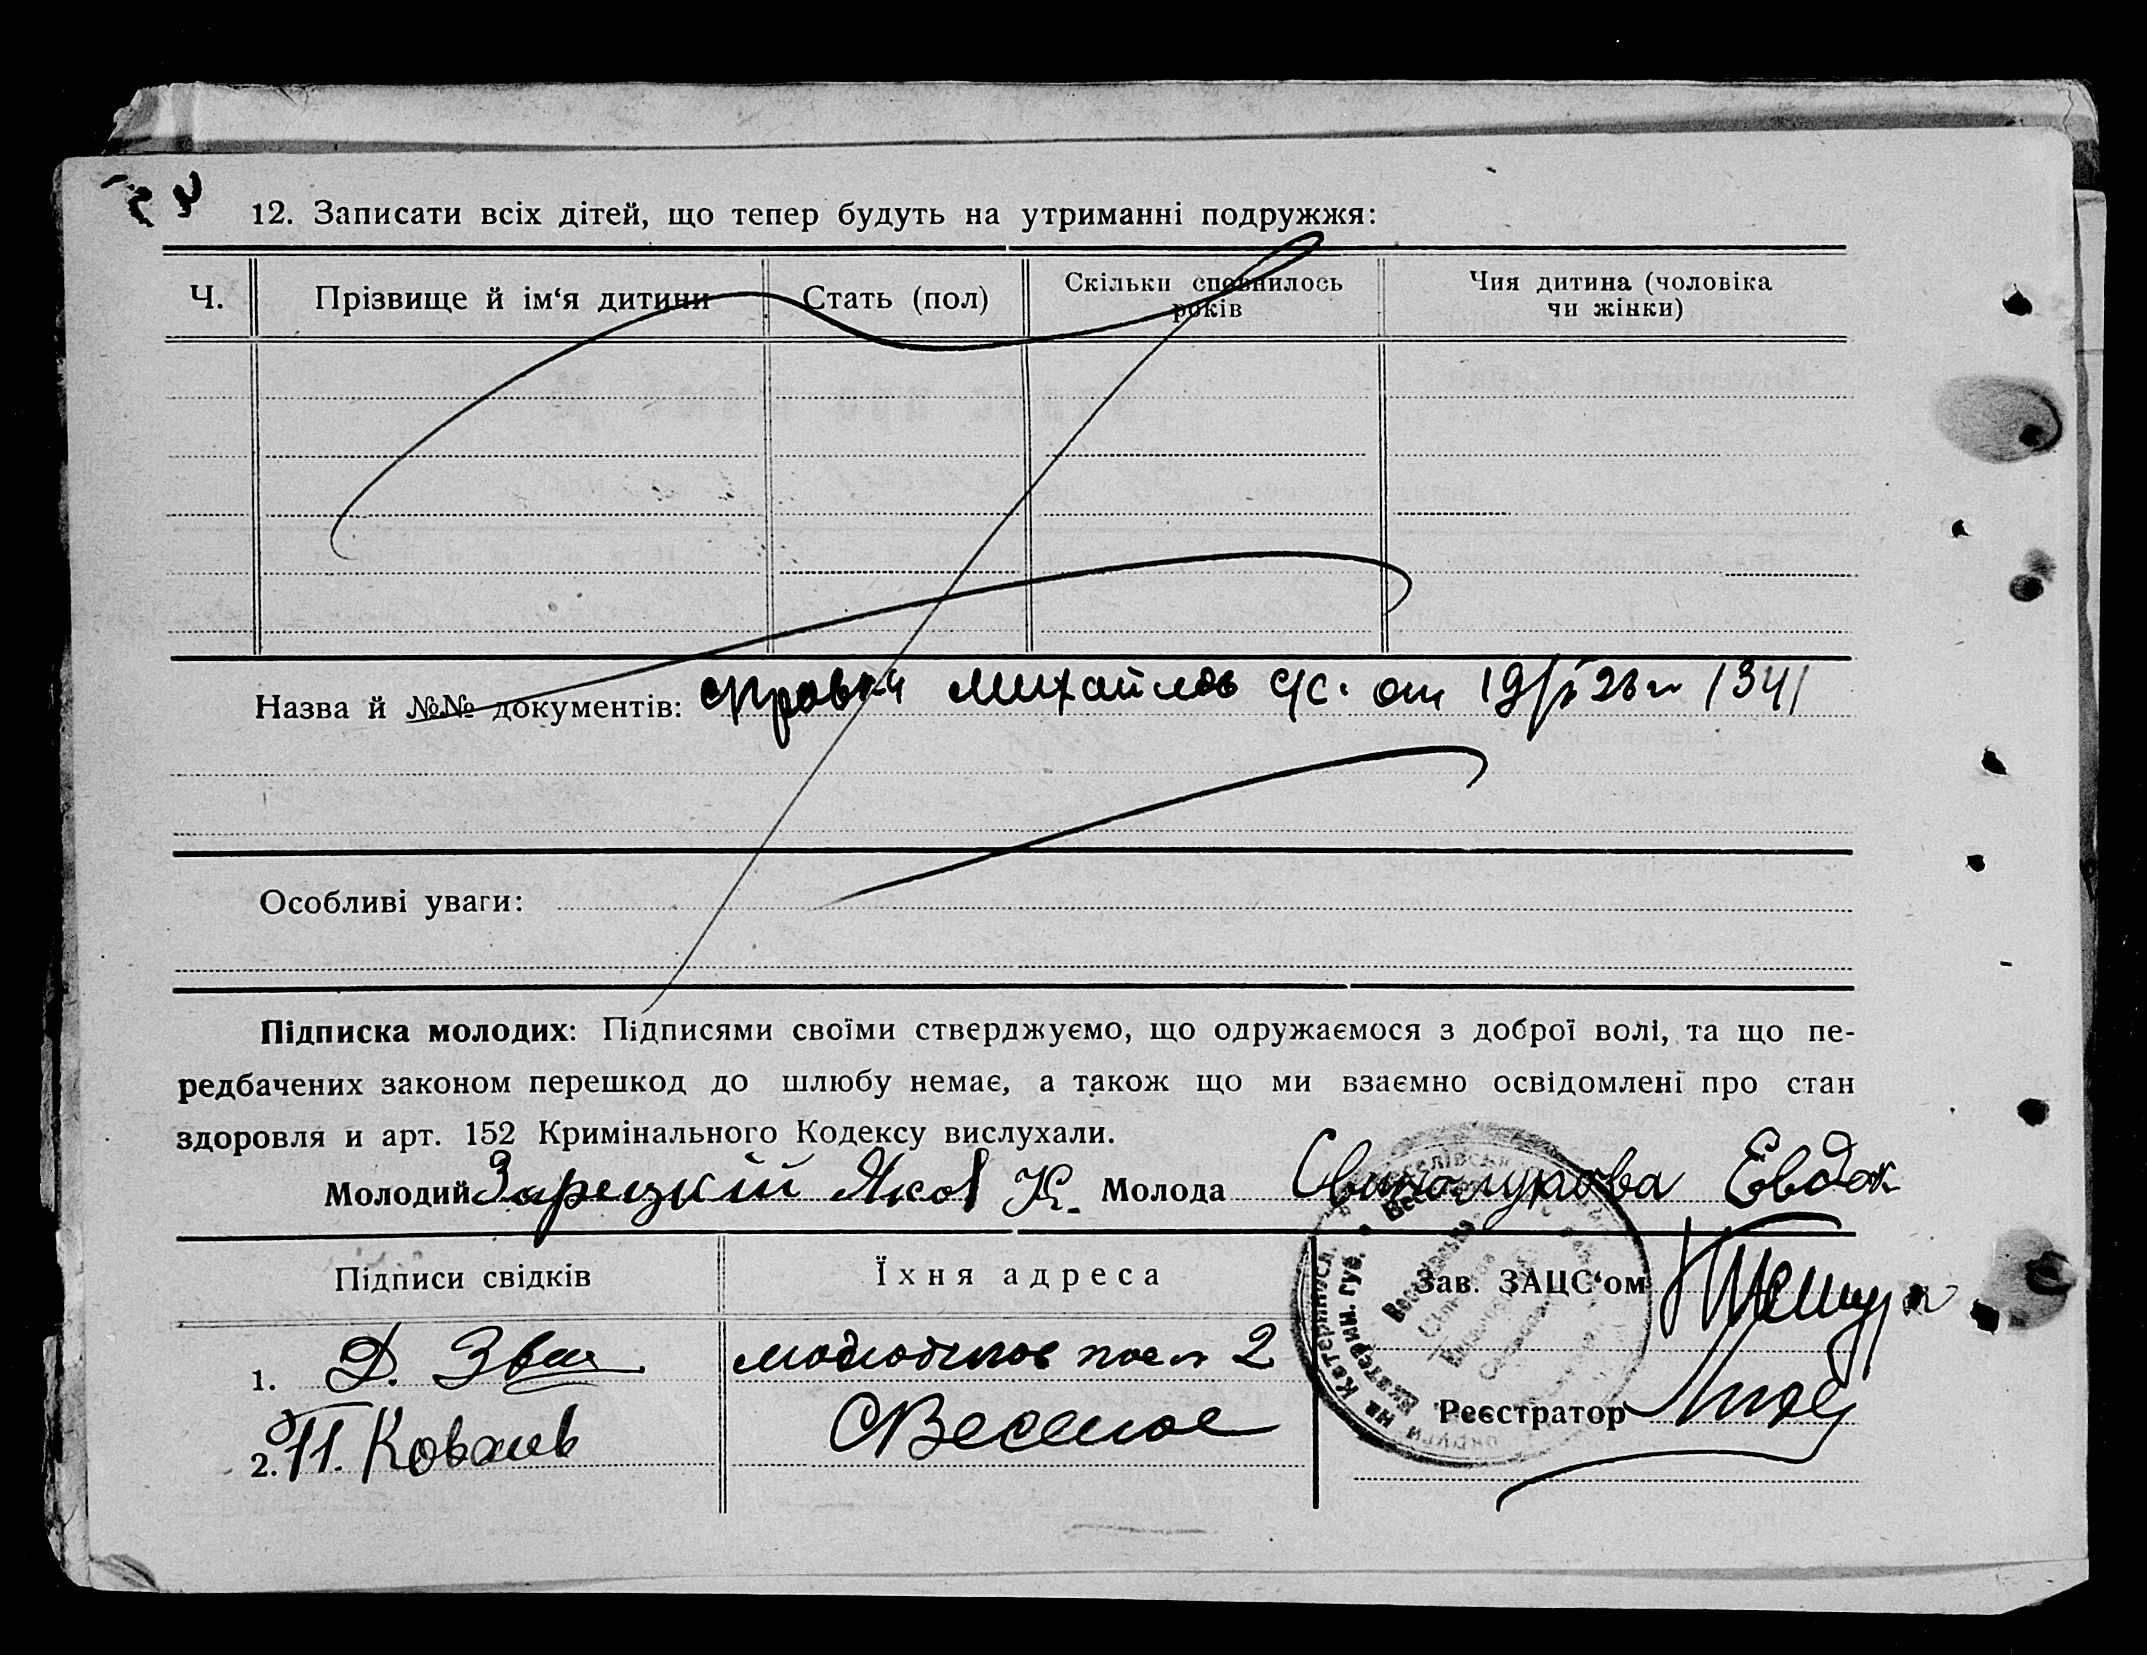 12. Записати всіх дітей, що тепер будуть на утриманні подружжя:
Ч. Прізвище й ім‘я дитини Стать (пол) Скільки сповнилось років Чия дитина (чоловіка чи жінки)
Назва й №№ документів: справка Михайлов с/с. от 1341
Особливі уваги:
Підписка молодих: Підписями своїми стверджуємо, що одружаємося з доброї волі, та що пе-
редбачених законом перешкод до шлюбу немає, а також що ми взаємно освідомлені про стан
здоровля и арт. 152 Кримінального Кодексу вислухали.
Молодий Зарецкий Яков К. Молода Евдок
Підписи свідків Їхня адреса Зав. ЗАЦС‘ом
1. Д. 2
Реєстратор
2. П. Ковалев С Веселое
на Катериносл.
Екатерин. губ.